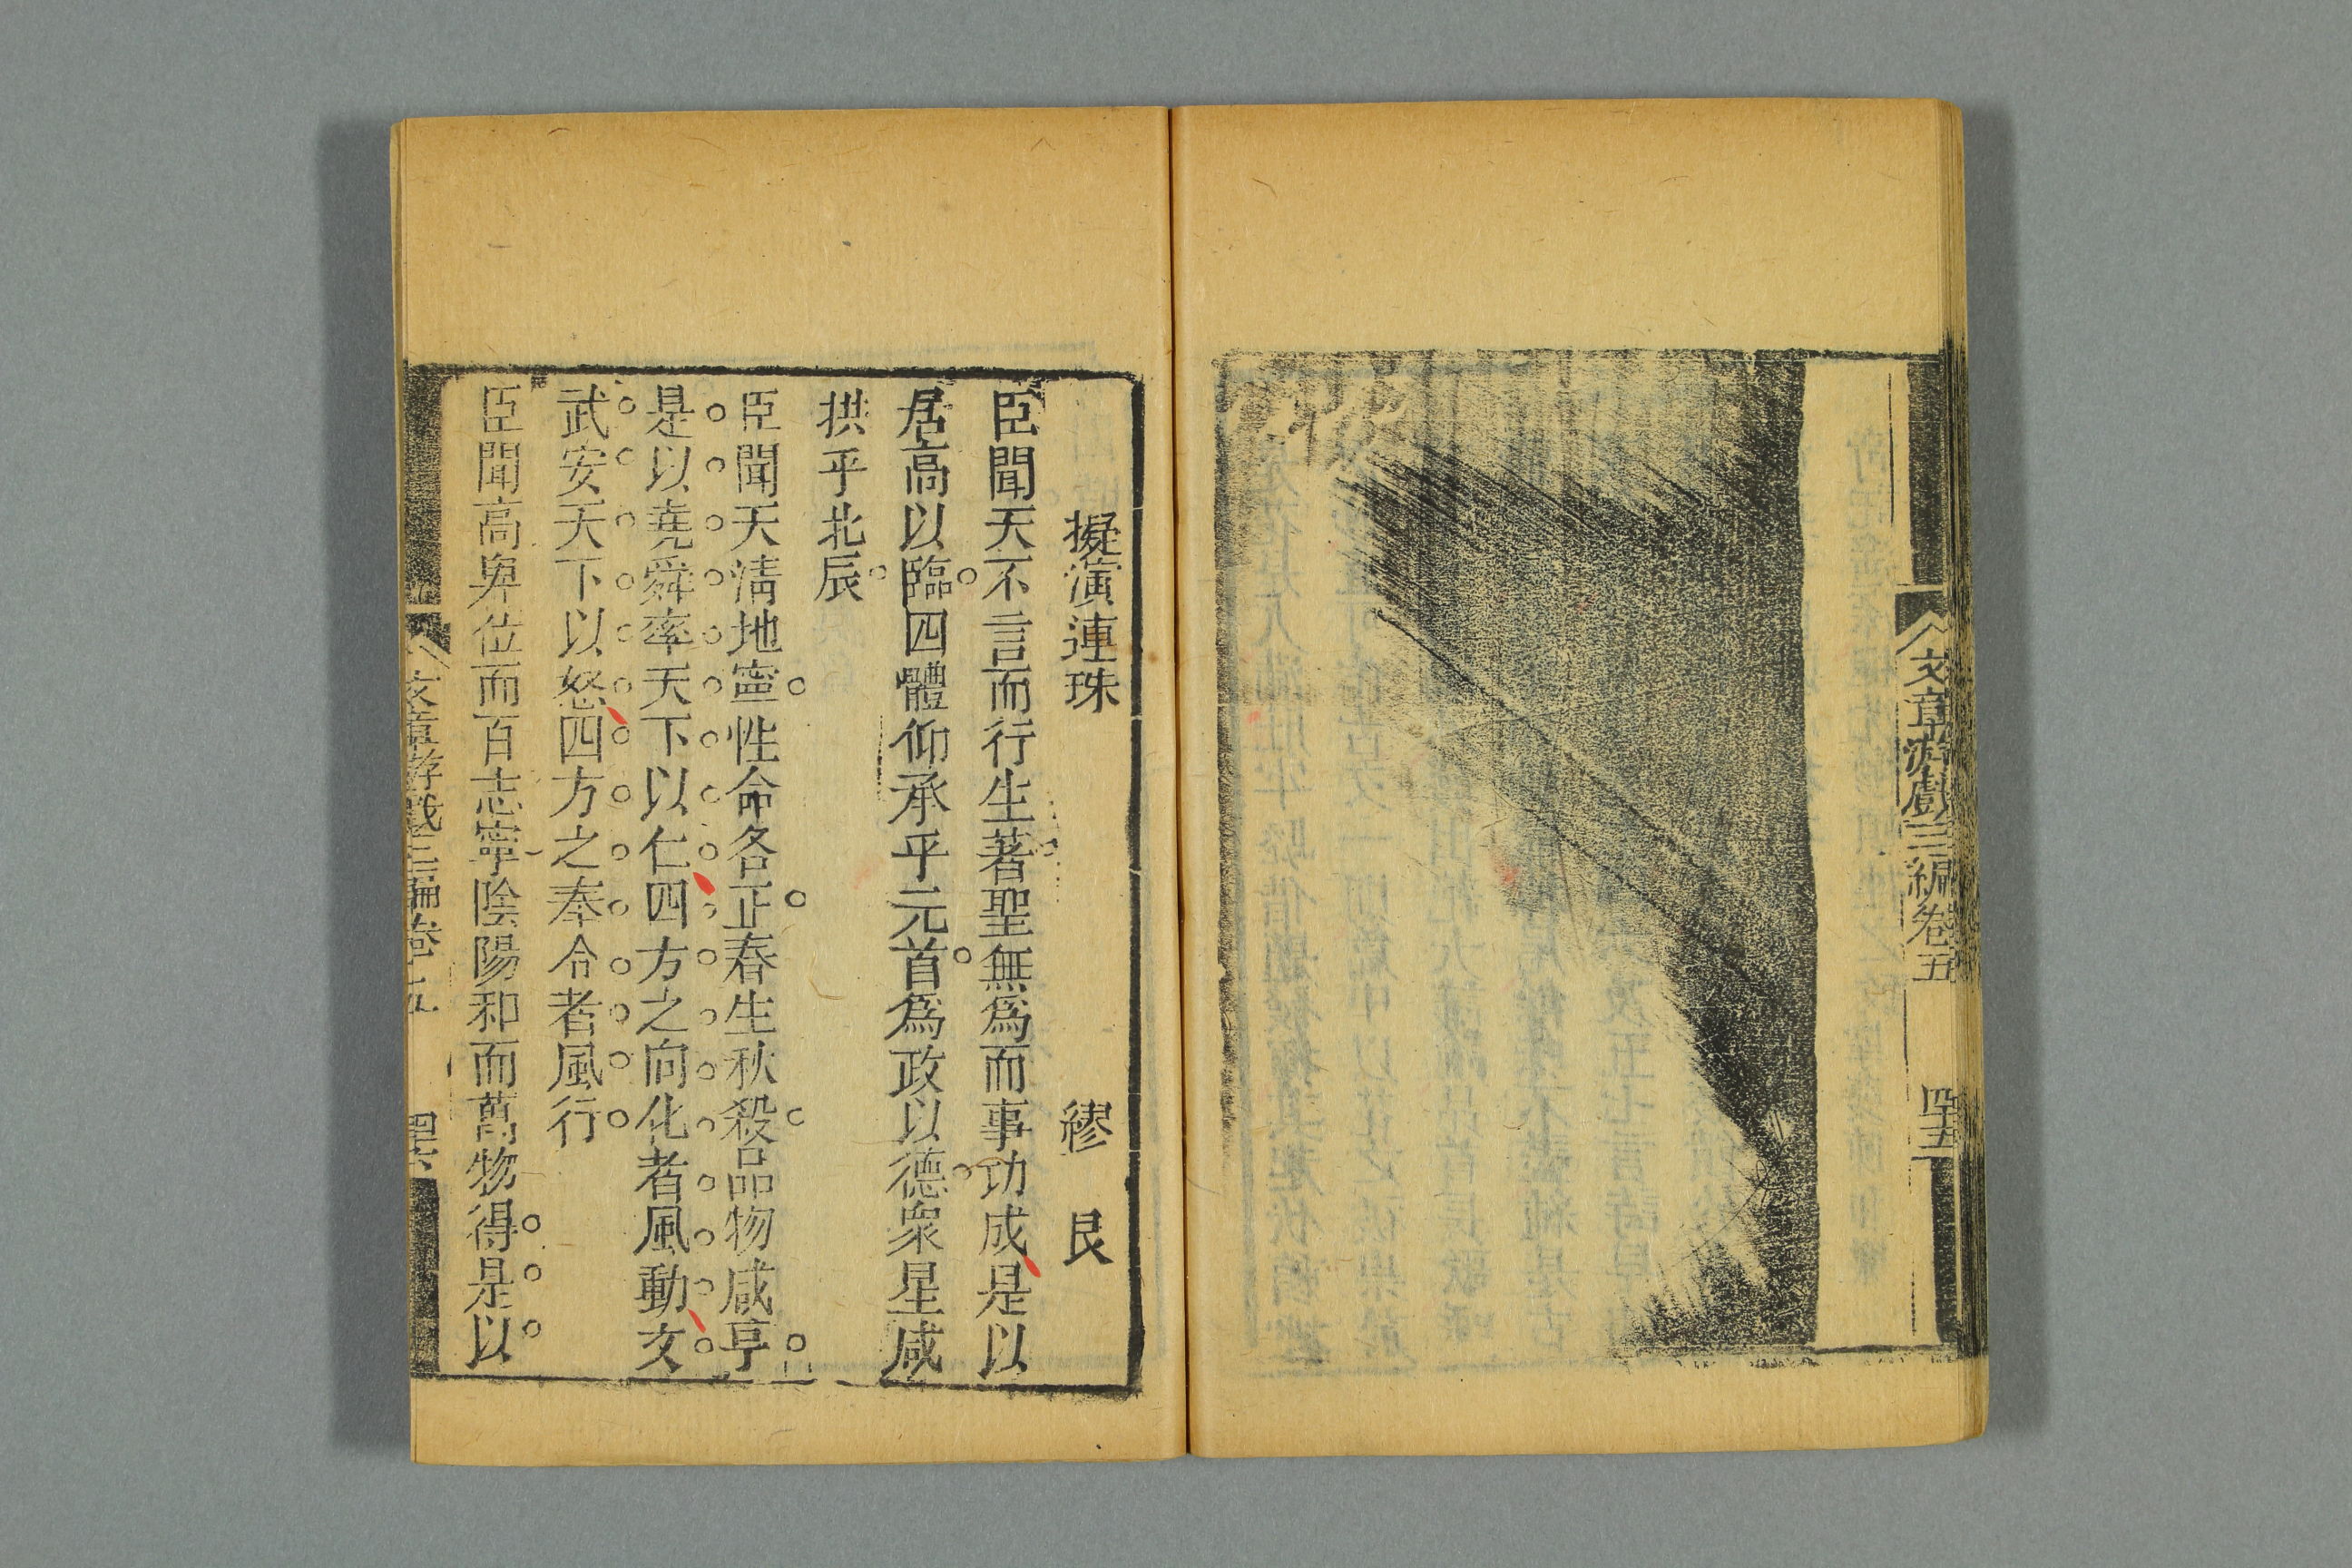 文章游戲三編卷五 四十五
擬演連珠 繆艮
臣聞天不言而行生著聖無爲而事功成是以
居高以臨四體仰承乎元首爲政以德衆星咸
拱乎北辰
臣聞天淸地寧性命各正春生秋殺品物咸亨
是以堯舜率天下以仁四方之向化者風動文
武安天下以怒四方之奉令者風行
臣聞高卑位而百志寧陰陽和而萬物得是以
文章游戲三編卷五 四十六